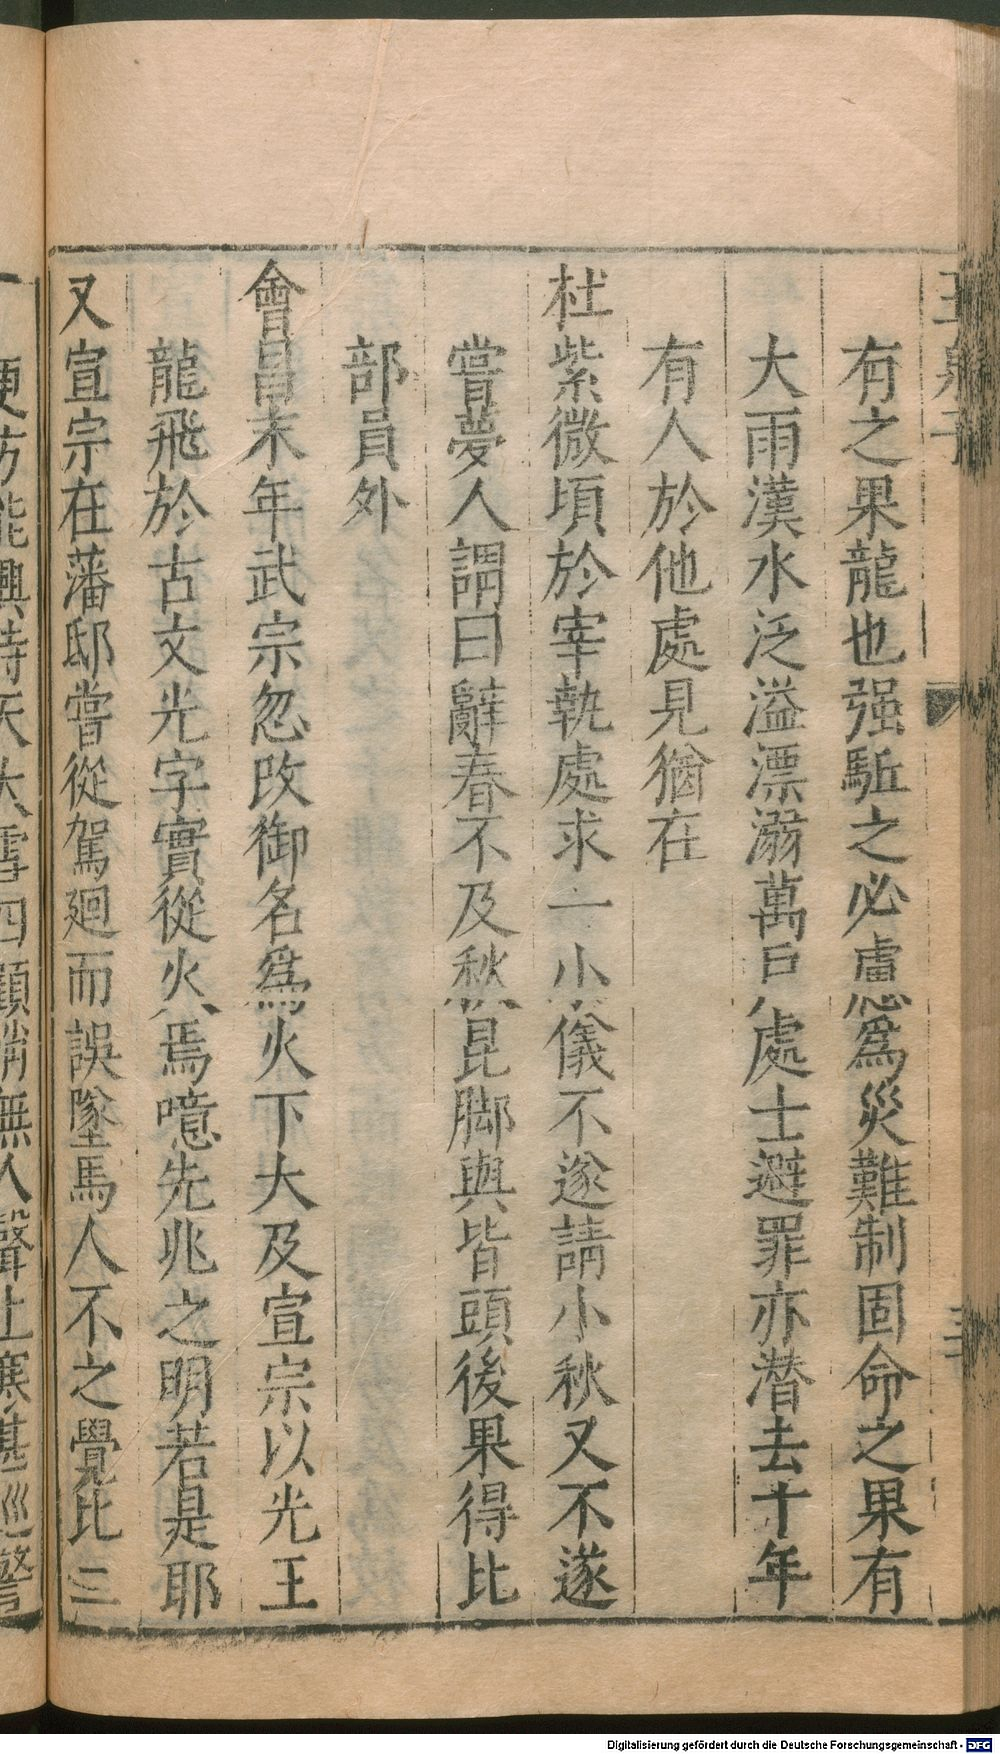 玉泉子
有之果龍也强駈之必慮爲災難制固命之果有
大雨漢水泛溢漂溺萬戸處士避罪亦潛去十年
有人於他處見猶在
杜紫微頃於宰執處求一小儀不遂請小秋又不遂
嘗夢人謂曰辭春不及秋昆脚與皆頭後果得比
部員外
會昌末年武宗忽改御名爲火下火及宣宗以光王
龍飛於古文光字實從火焉噫先兆之明若是耶
又宣宗在藩邸嘗從駕廻而誤墜馬人不之覺比二
更方能興時天大雪四顧悄無人聲上寒甚巡警
Digitalisierung gefördert durch die Deutsche Forschungsgemeinschaft - DFG